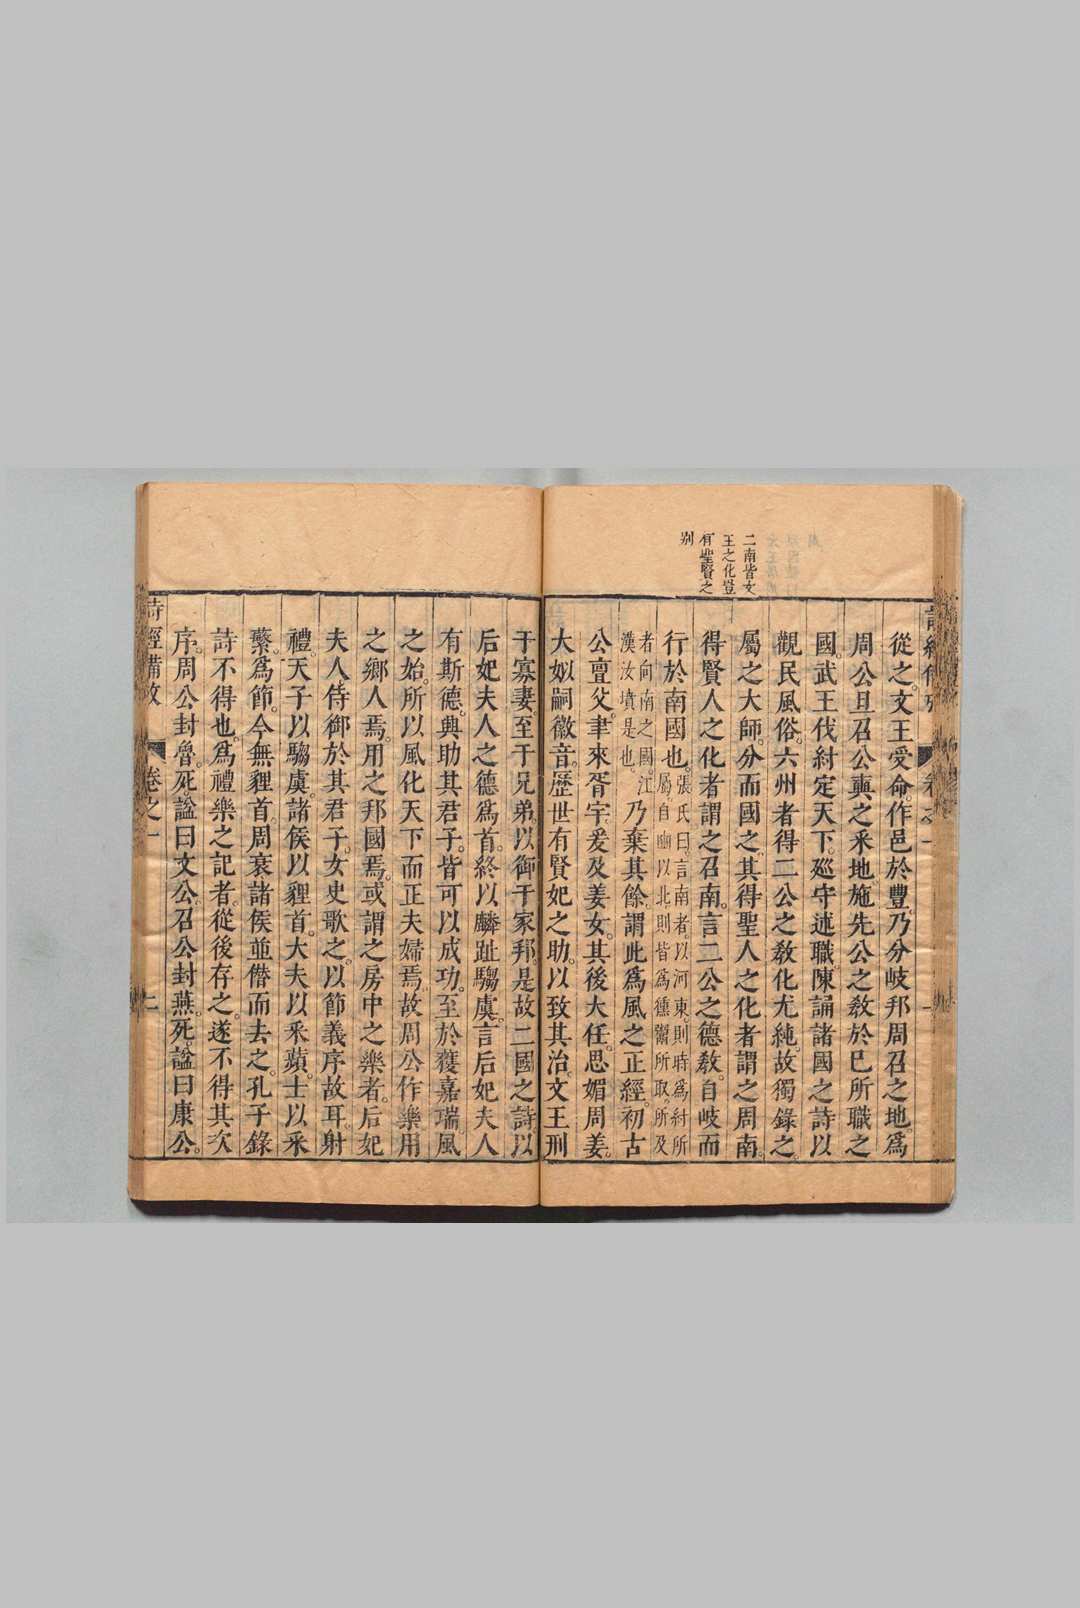 二南皆文
王之化豈
有聖賢之
別
從之。文王受命。作邑於豐。乃分岐邦周召之地。爲
周公旦召公奭之采地。施先公之教於巳所職之
國。武王伐紂定天下。巡守述職。陳誦諸國之詩。以
觀民風俗。六州者得二公之教化尤純。故獨錄之。
屬之大師。分而國之。其得聖人之化者謂之周南。
得賢人之化者謂之召南。言二公之德教。自岐而
行於南國也。張氏曰。言南者。以河東。則時爲紂所
屬。自豳以北。則皆爲獯鬻所取。所及
者向南之國。江
漢汝墳是也。乃棄其餘。謂此爲風之正經。初古
公亶父。聿來胥宇。爰及姜女。其後大任。思媚周姜。
大姒嗣徽音。歷世有賢妃之助。以致其治。文王刑
于寡妻。至于兄弟。以御于家邦。是故二國之詩。以
后妃夫人之德爲首。終以麟趾騶虞。言后妃夫人
有斯德。興助其君子。皆可以成功。至於獲嘉瑞。風
之始。所以風化天下而正夫婦焉。故周公作樂。用
之鄉人焉。用之邦國焉。或謂之房中之樂者。后妃
夫人。侍御於其君子。女史歌之。以節義序故耳。射
禮。天子以騶虞。諸侯以貍首。大夫以采蘋。士以采
蘩。爲節。今無貍首。周衰諸侯並僭而去之。孔子錄
詩不得也。爲禮樂之記者。從後存之。遂不得其次
序。周公封魯。死。諡曰文公。召公封燕。死。諡曰康公。
詩經備攷
卷之一
二